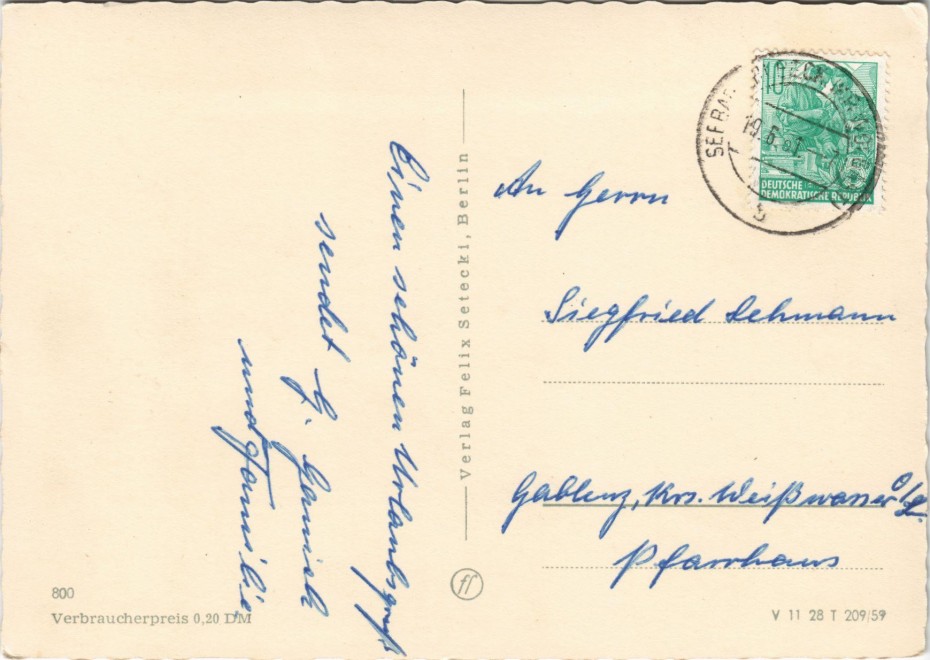 Einen schönen Urlaubsgruß
sendet G.
und Familie
Verlag Felix Setecki, Berlin
10
DEUTSCHE
DEMOKRATISCHE REPUBLIK
19.6.61
b
An Herrn
Siegfried Lehmann
Gablenz, Krs. Weißwasser O/L.
Pfarrhaus
800
Verbraucherpreis 0,20 DM
V 11 28 T 209/59